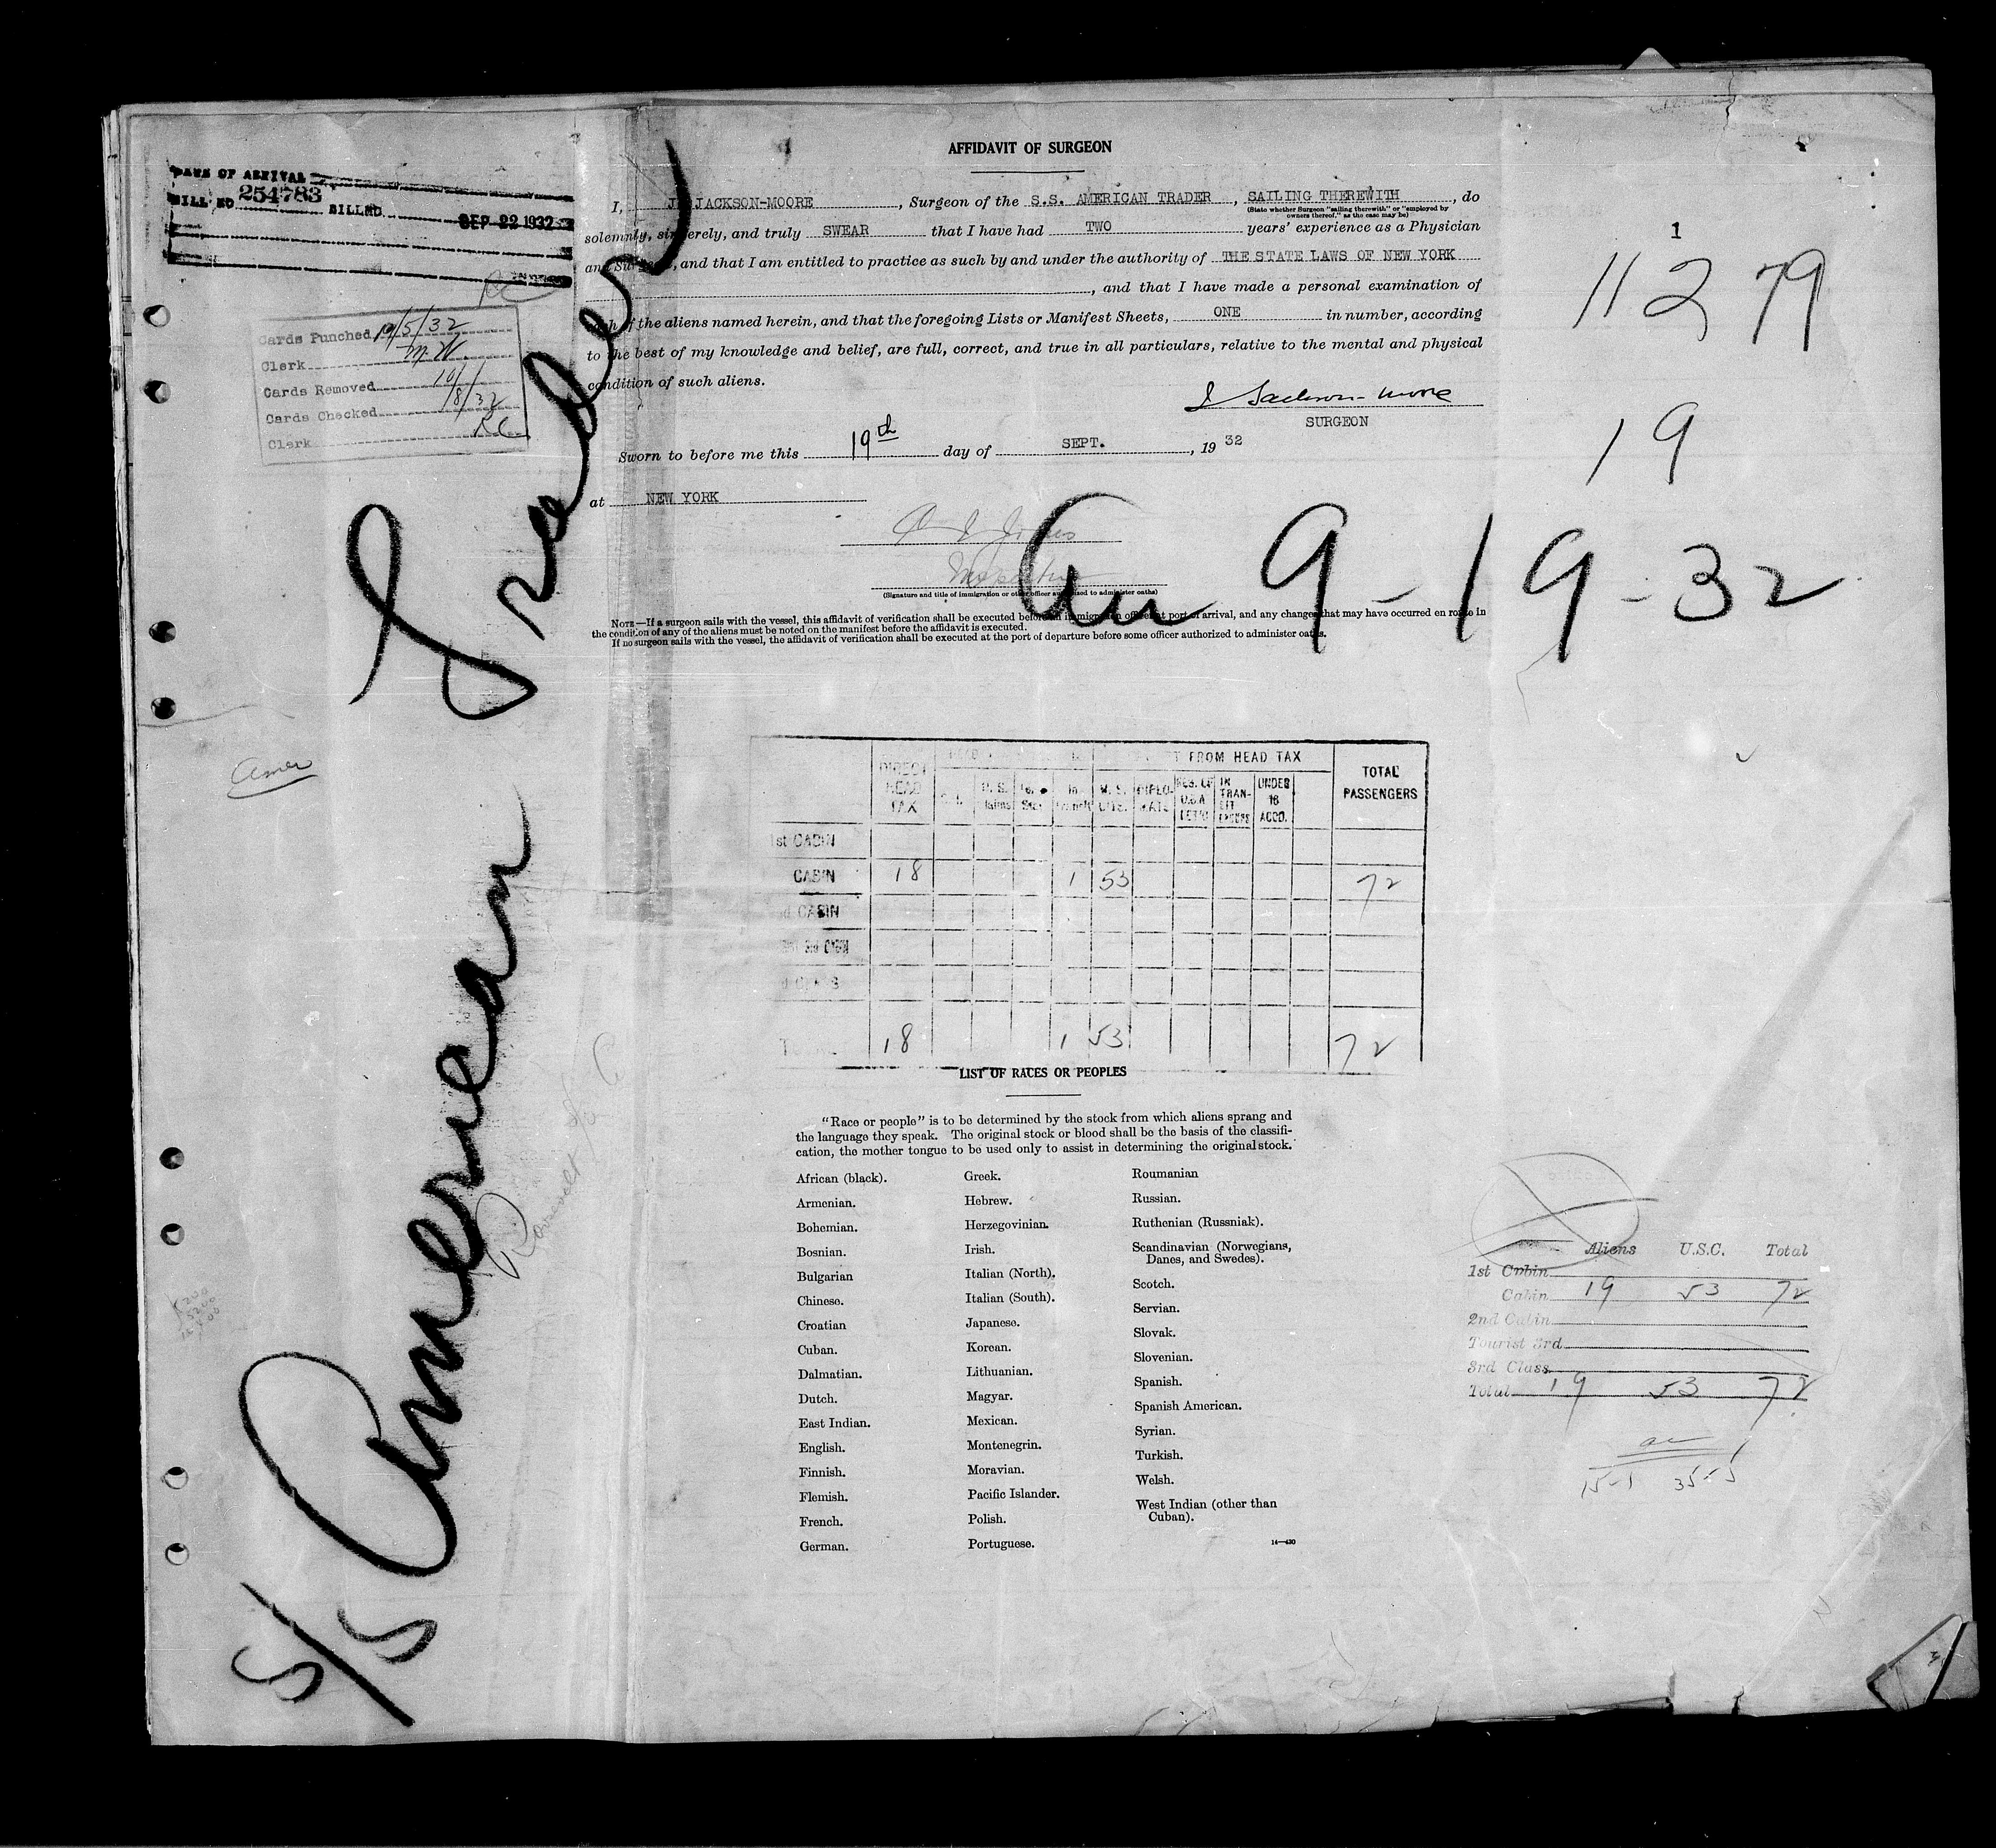 DATE OF ARRIVAL
BILL NO. 254783 BILLED SEP 22 1932
RC
Cards Punched 10/5/32
Clerk M.W.
Cards Removed 10/
Cards Checked 18/32
Clerk RC
S/S American Trader
Amer
AFFIDAVIT OF SURGEON
I, J. JACKSON-MOORE, Surgeon of the S.S. AMERICAN TRADER, SAILING THEREWITH, do
(State whether Surgeon "sailing therewith" or "employed by
owners thereof," as the case may be)
solemnly, sincerely, and truly SWEAR that I have had TWO years' experience as a Physician
and Surgeon, and that I am entitled to practice as such by and under the authority of THE STATE LAWS OF NEW YORK
, and that I have made a personal examination of
each of the aliens named herein, and that the foregoing Lists or Manifest Sheets, ONE in number, according
to the best of my knowledge and belief, are full, correct, and true in all particulars, relative to the mental and physical
condition of such aliens.
J Jackson-Moore
SURGEON
Sworn to before me this 19th day of SEPT., 19 32
at NEW YORK
(Signature and title of immigration or other officer authorized to administer oaths)
NOTE.—If a surgeon sails with the vessel, this affidavit of verification shall be executed before an immigration officer at port of arrival, and any changes that may have occurred en route in
the condition of any of the aliens must be noted on the manifest before the affidavit is executed.
If no surgeon sails with the vessel, the affidavit of verification shall be executed at the port of departure before some officer authorized to administer oaths.
1
11279
19
9-19-32
DIRECT HEAD TAX
FROM HEAD TAX
TOTAL PASSENGERS
U.S. CITS. DIPLOMATS RES. OF U.S.A. RET'G IN TRANSIT EXCUPS UNDER 16 ACCD.
1st CABIN
CABIN 18 1 53 72
2nd CABIN
3d CLASS
TOTAL 18 1 53 72
LIST OF RACES OR PEOPLES
"Race or people" is to be determined by the stock from which aliens sprang and
the language they speak. The original stock or blood shall be the basis of the classifi-
cation, the mother tongue to be used only to assist in determining the original stock.
African (black).
Armenian.
Bohemian.
Bosnian.
Bulgarian
Chinese.
Croatian
Cuban.
Dalmatian.
Dutch.
East Indian.
English.
Finnish.
Flemish.
French.
German.
Greek.
Hebrew.
Herzegovinian.
Irish.
Italian (North).
Italian (South).
Japanese.
Korean.
Lithuanian.
Magyar.
Mexican.
Montenegrin.
Moravian.
Pacific Islander.
Polish.
Portuguese.
Roumanian
Russian.
Ruthenian (Russniak).
Scandinavian (Norwegians,
Danes, and Swedes).
Scotch.
Servian.
Slovak.
Slovenian.
Spanish.
Spanish American.
Syrian.
Turkish.
Welsh.
West Indian (other than
Cuban).
14—430
Aliens U.S.C. Total
1st Cabin
Cabin 19 53 72
2nd Cabin
Tourist 3rd
3rd Class
Total 19 53 72
15-1 35-5